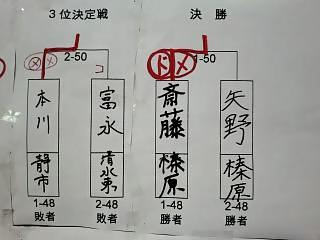 3位決定戦
決勝
メメ
2-50
コ
ドメ
1-50
本川
富永
斎藤
矢野
静市
清水東
榛原
榛原
1-48
敗者
2-48
敗者
1-48
勝者
2-48
勝者